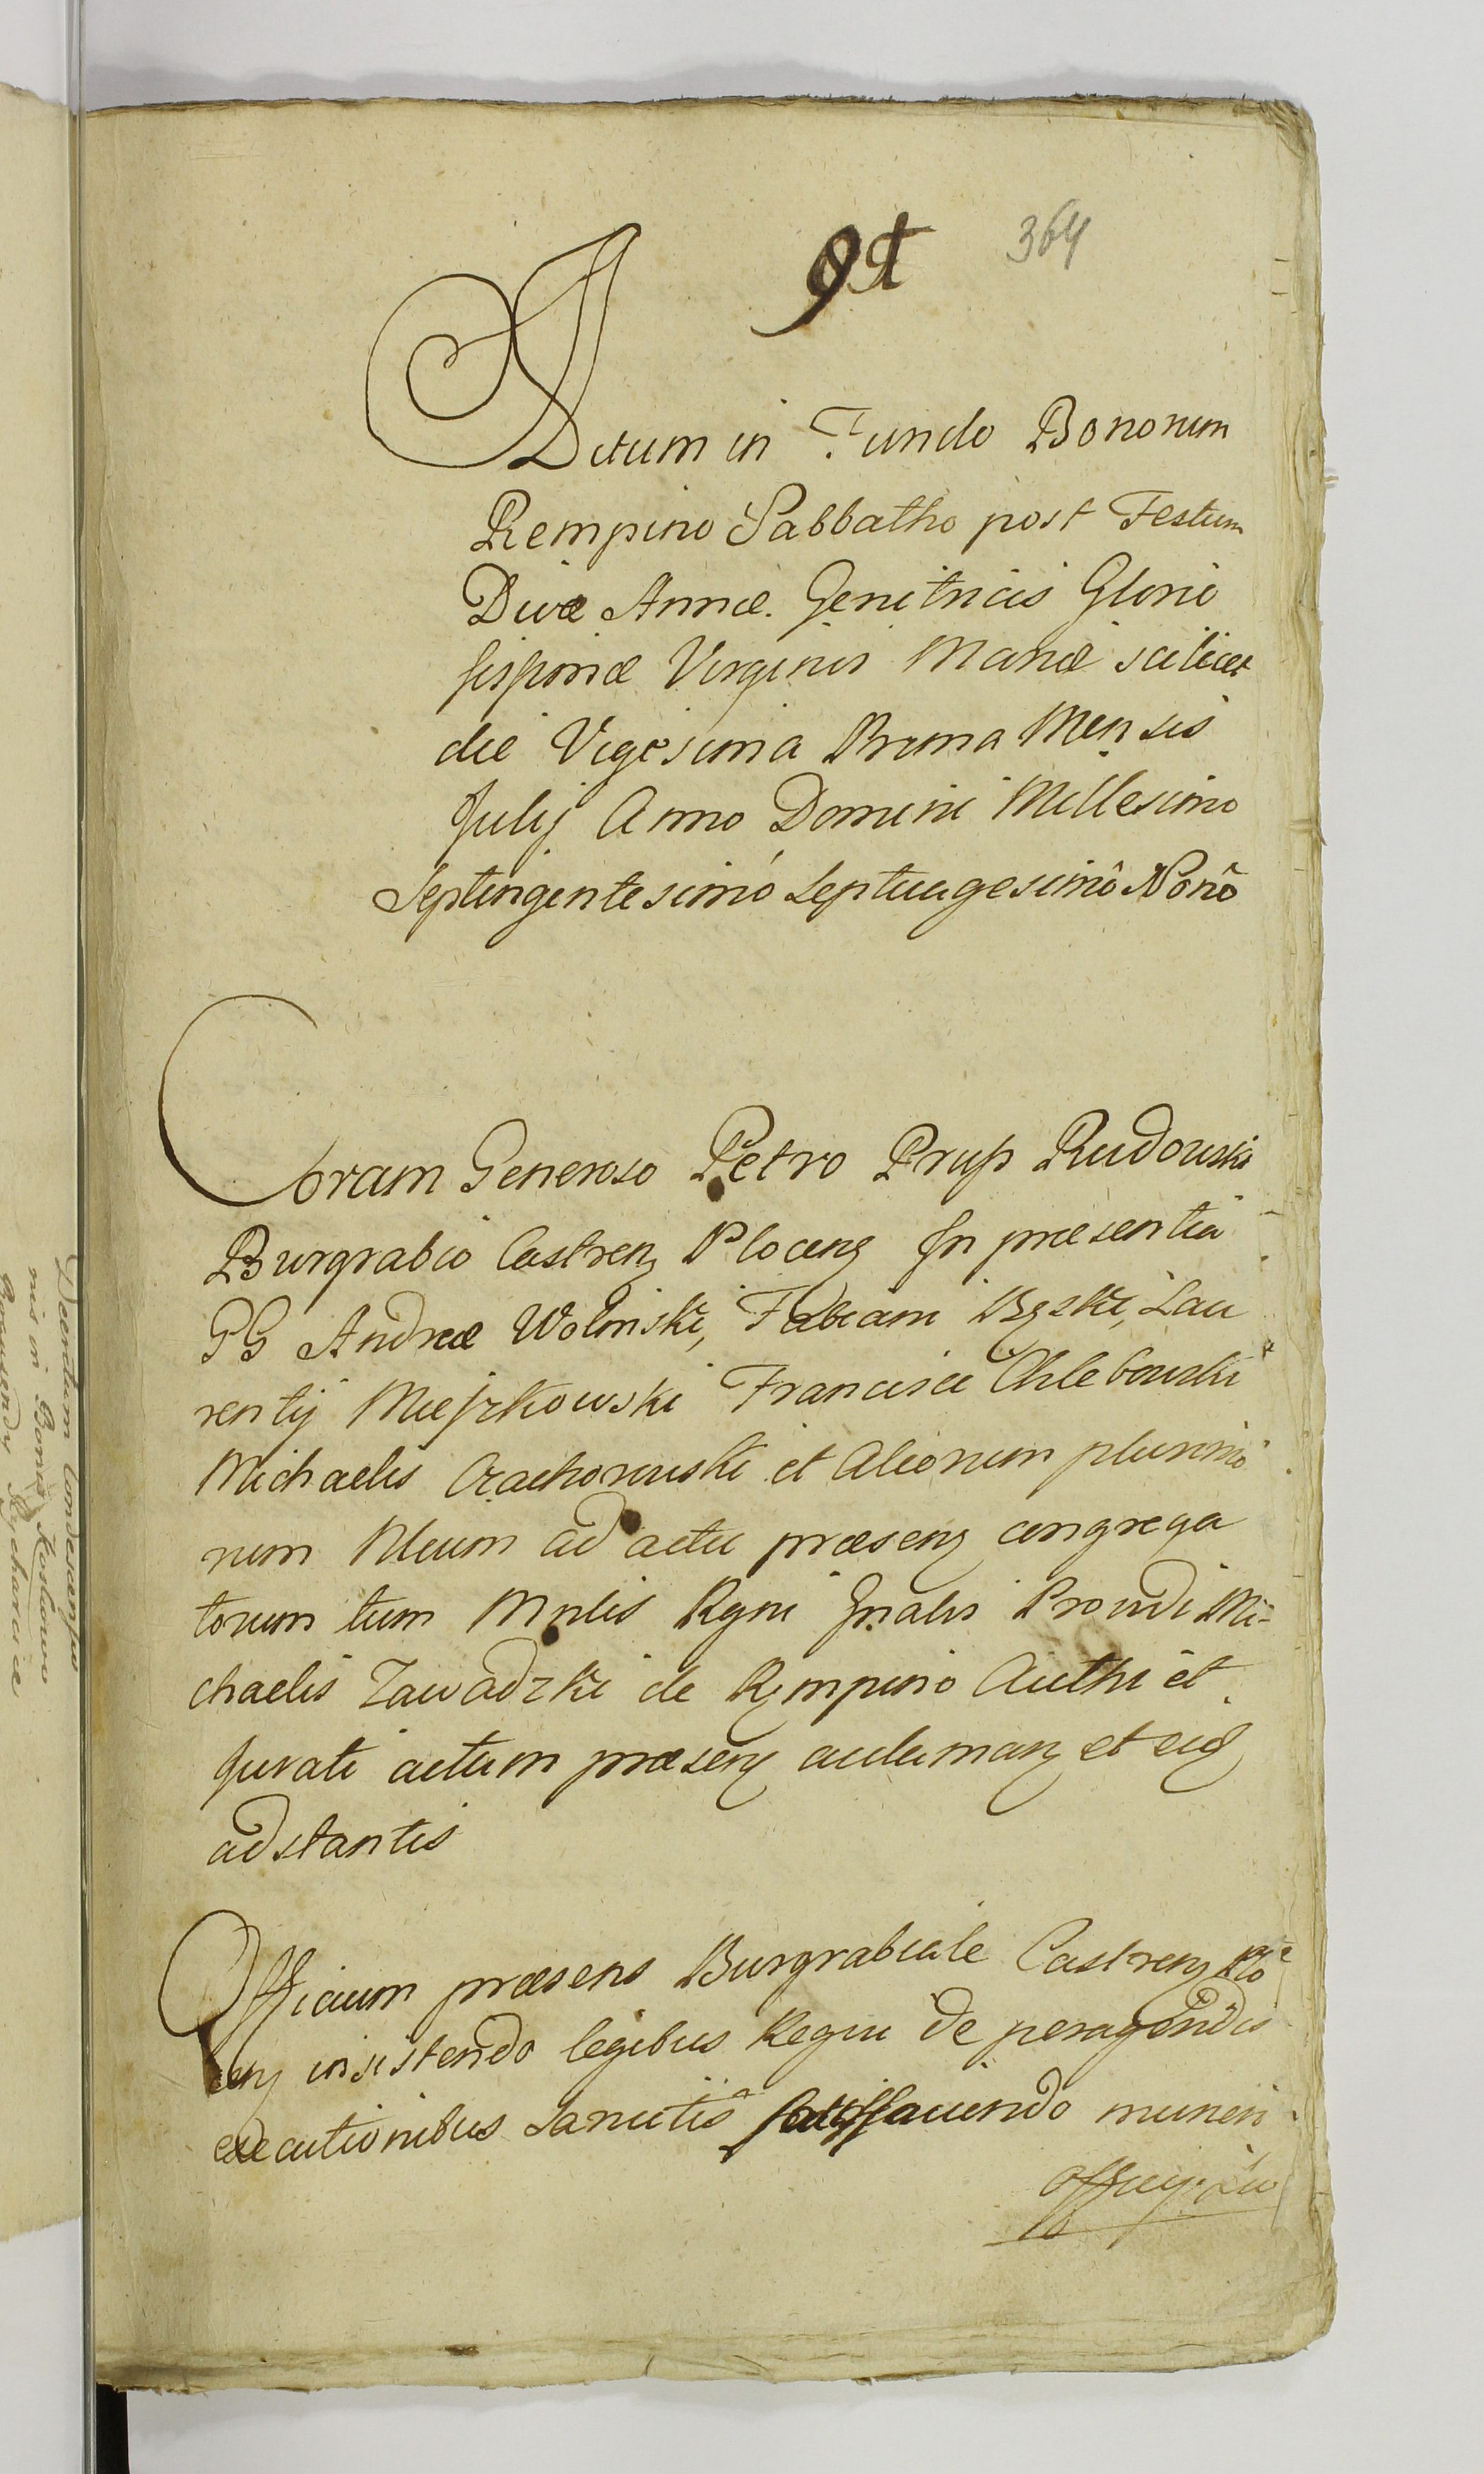 364
Actum in Fundo Bonorum
Rempino Sabbatho post Festum
Divæ Annæ Genitricis Glorio
sissimæ Virginis Mariæ scilicet
die Vigesima Prima Mensis
Julij Anno Domini Millesimo
Septingentesimo Septuagesimô Nonô
Coram Generoso Petro Prus Rudowski
Burgrabio Castren Plocen In præsentia
GG Andreæ Woliński, Fabiani Bęski, Lau
rentij Mieszkowski Francisci Chlebowski
Michaelis Czachorowski et Aliorum plurimo
rum ad actu præsen congrega
torum tum Mnlis Rgni Gnalis Providi Mi-
chaelis Zawadzki de Rempino Authi et
Jurati actum præsen et eid
adstantis
Officium præsens Burgrabiale Castren Plo
cen insistendo legibus Regni de peragendis
executionibus sancitis satisfaciendo muneri
officij suo
Condescensio
nis in Bonis